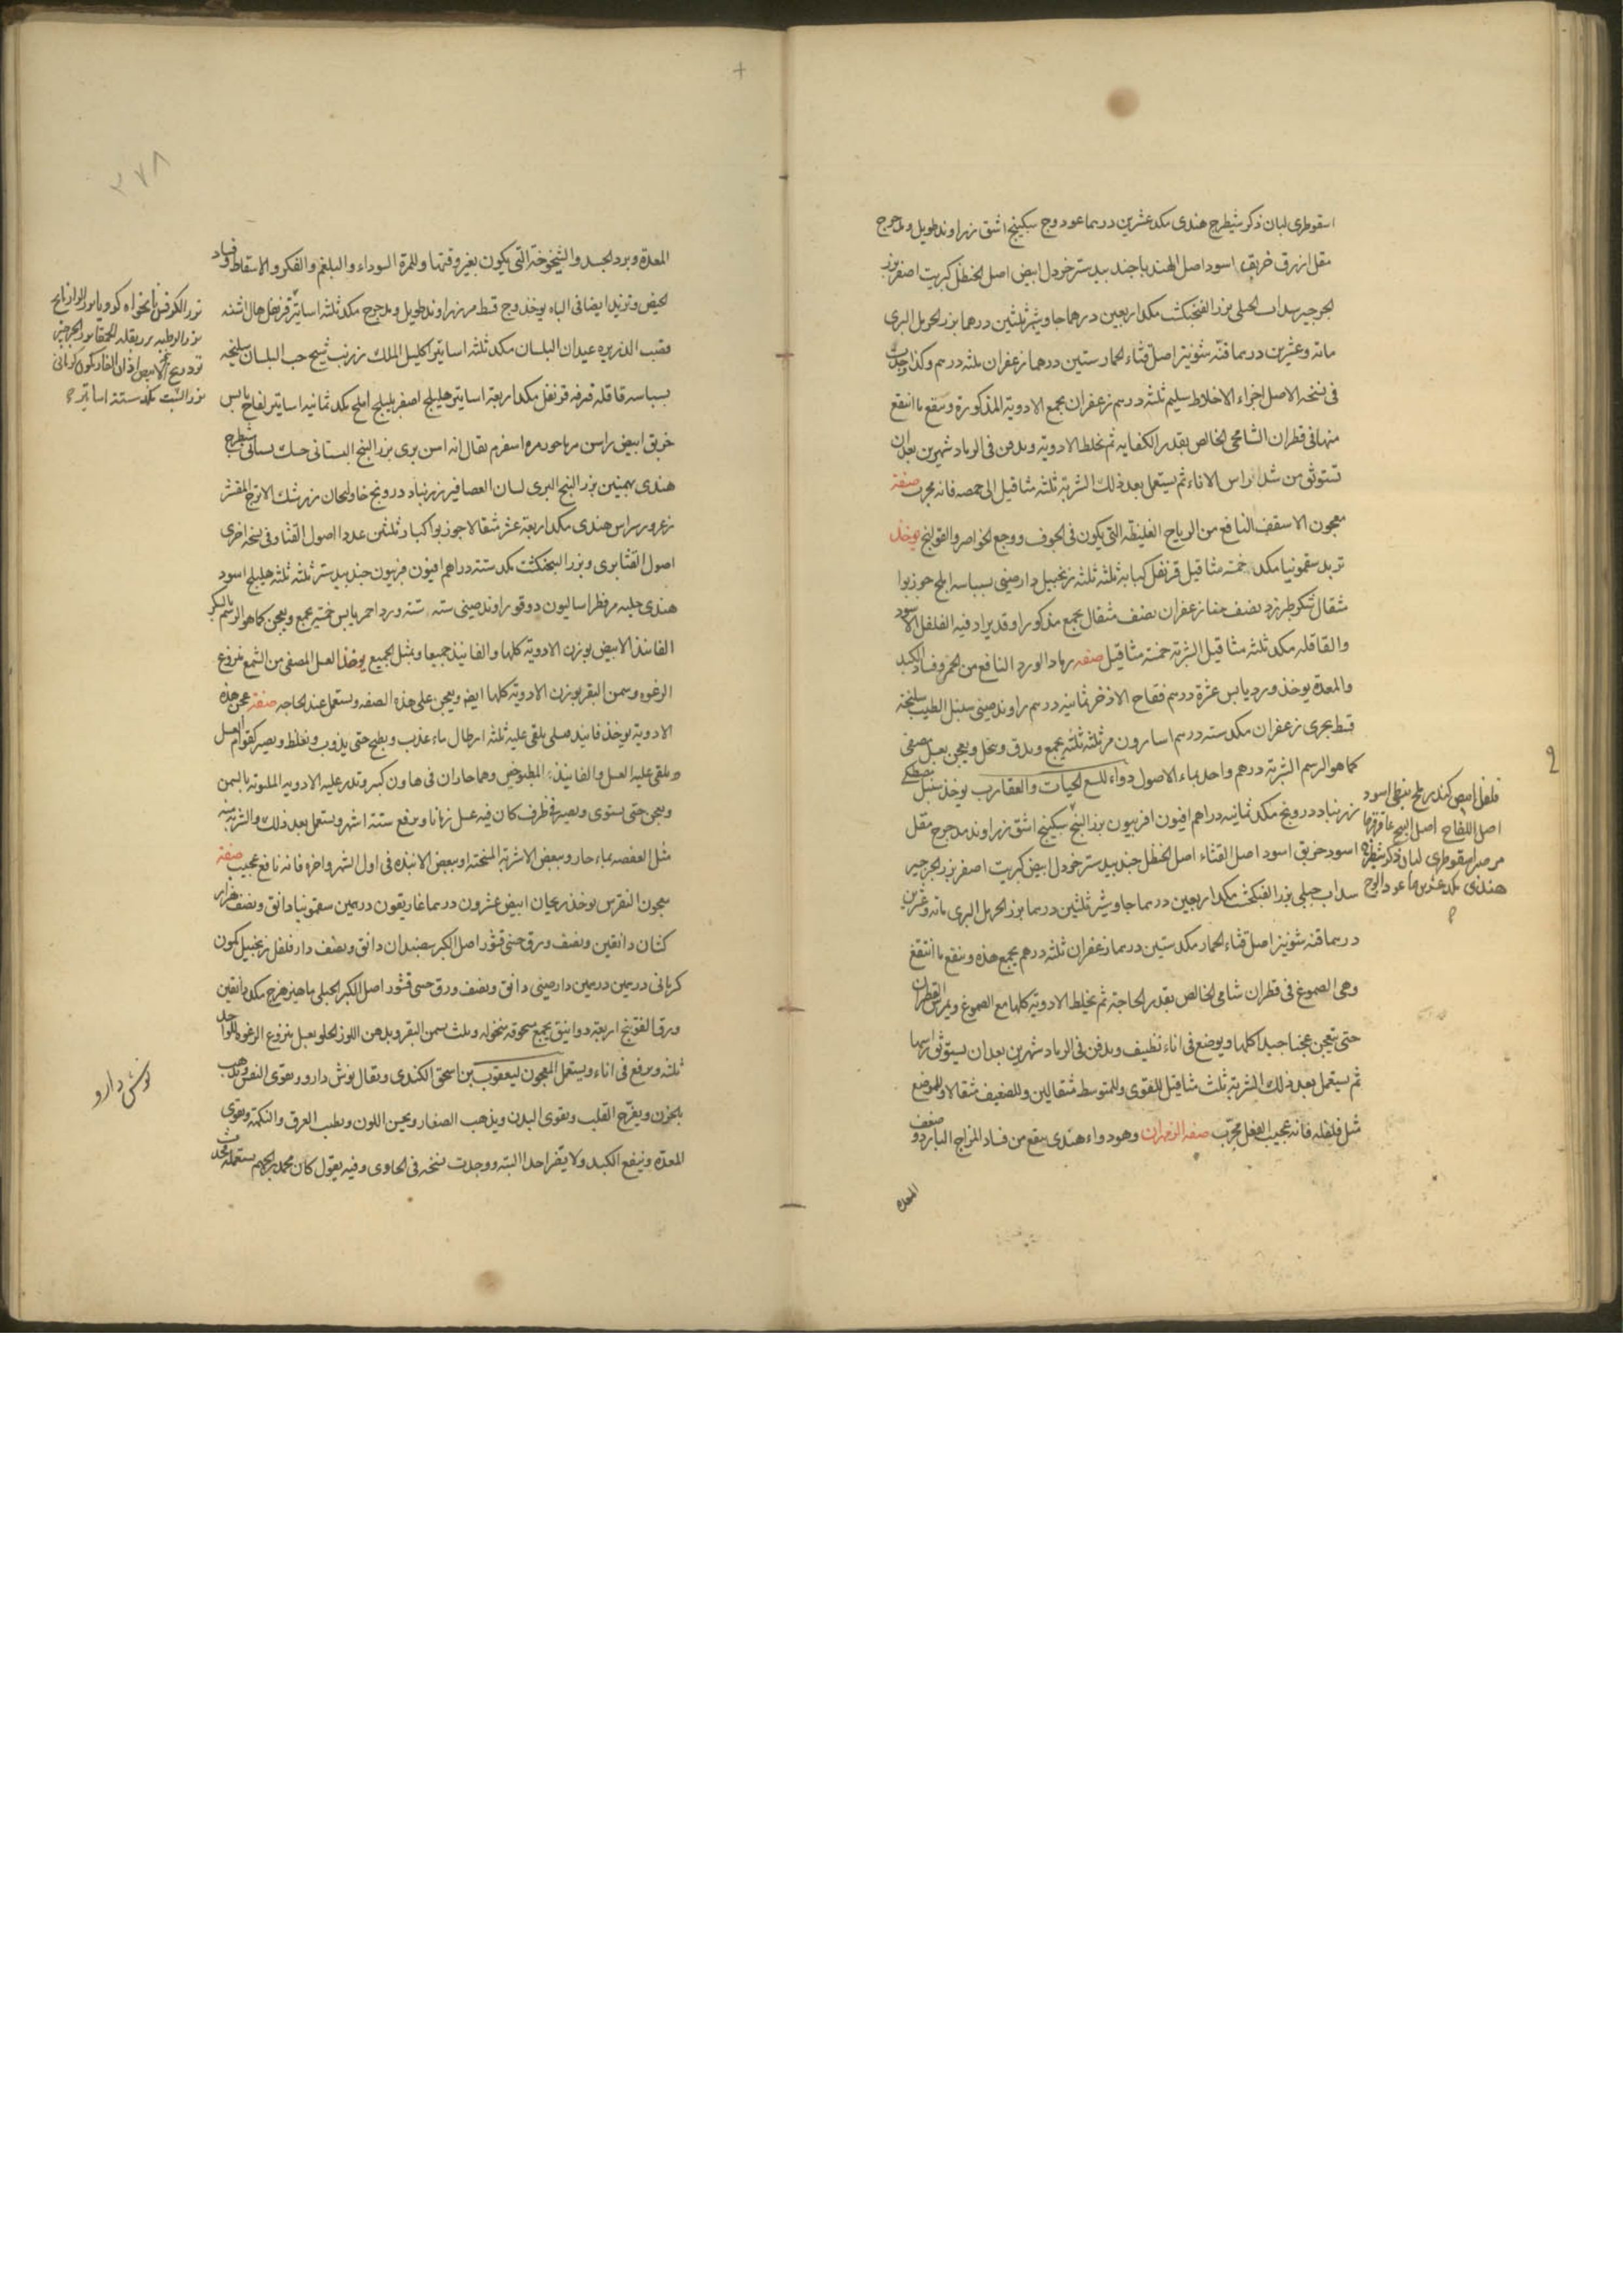 اسقوطرى لبان ذكر شيطرج هندى مكد عشرين درهما عود وج سكبينج اشق زراوند طويل ومدحرج
مقل ازرق خربق اسود اصل الهندبا جندبيدستر خردل ابيض اصل الحنظل كبريت اصفر بزر
الجرجير سداب الجبلى بزر الفنجنكشت مكد اربعين درهما جاوشير ثلثين درهما بزر الحرمل البرى
مائة وعشرين درهما قنّه شونيز اصل قثاء الحمار ستين درهما زعفران ثلثه درهم وكذا وجدت
فى نسخة الاصل اجزاء الاخلاط سليم ثلثه درهم زعفران يجمع الادوية المذكورة وينقع ما انتقع
منها فى قطران الشامى الخالص بقدر الكفايه ثم تخلط الادوية ويدفن فى الرماد شهرين بعد ان
تستوثق من شد راس الاناء ثم يستعمل بعد ذلك الشربة ثلثه مثاقيل الى حمصه فانه مجرب صفة
معجون الاسقف النافع من الرياح الغليظه التى يكون فى الجوف ووجع الخواصر والقولنج يوخذ
تربد سقمونيا مكد خمسه مثاقيل قرنفل كبابة ثلثه ثلثه زنجبيل دارصينى بسباسه املج جوزبوا
مثقال سكر طبرزد نصف منا زعفران نصف مثقال يجمع مذكورا وقد يزاد فيه الفلفل الاسود
والقاقله مكد ثلثه مثاقيل الشربة خمسة مثاقيل صفه رماد الورد النافع من الخمر وفساد الكبد
والمعدة يوخذ ورد يابس عشرة درهم فقاح الاذخر ثمانيه درهم راوند صينى سنبل الطيب سليخه
قسط بحرى زعفران مكد سته درهم اسارون مر ثلثه ثلثه يجمع ويدق وينخل ويعجن بعسل مصفى
كما هو الرسم الشربة درهم واحد بماء الاصول دواء للسع الحيات والعقارب يوخذ سنبل مصطكى
زرنباد درونج مكد ثمانيه دراهم افيون افربيون بزر البنج سكبينج اشق زراوند مدحرج مقل
اسود خربق اسود اصل القثاء اصل الحنظل جندبيدستر خردل ابيض كبريت اصفر بزر الجرجير
سداب جبلى بزر الفنجنكشت مكد اربعين درهما جاوشير ثلثين درهما بزر الحرمل البرى مائة وعشرين
درهما قنه شونيز اصل قثاء الحمار مكد ستين درهما زعفران ثلثه درهم يجمع هذه وينقع ما انتقع
وهى الصموغ فى قطران شامى الخالص بقدر الحاجة ثم يخلط الادوية كلها مع الصموغ ويمرس القطران
حتى تنعجن عجنا جيدا كلها ويوضع فى اناء نظيف ويدفن فى الرماد شهرين بعد ان يستوثق راسها
ثم يستعمل بعد ذلك الشربة ثلث مثاقيل للقوى وللمتوسط مثقالين وللضعيف مثقالا وللموضع
مثل فلفله فانه عجيب الفعل مجرّب صفه الزمهران وهو دواء هندى ينفع من فساد المزاج البارد وضعف
المعده
فلفل ابيض كندر ملح نبطى اسود
اصل اللفاح اصل البنج عاقرقرحا
مر صبر اسقوطرى لبان ذكر شيطرج
هندى مكد عشرين درهما عود الوج
٢٧٨
المعدة وبرد الجسد والشيخوخة التى يكون بغير وقتها وللمرة السوداء والبلغم والفكر والاسقاط وفساد
الحيض وتزيد ايضا فى الباه يوخذ وج قسط مر زراوند طويل ومدحرج مكد ثلثه اساتير قرنفل هال اشنه
قصب الذريره عيدان البلسان مكد ثلثه اساتير اكليل الملك زرنب شيح حب البلسان سليخه
بسباسه قاقلة قرفه قرنفل مكد اربعة اساتير هليلج اصفر بليلج املج مكد ثمانيه اساتير لفاح يابس
خربق ابيض راسن مرماحور مره اسفرم يقال انه اس برى بزر البنج البستانى حسك بستانى شيطرج
هندى بهمنين بزر البنج البرى لسان العصافير زرنباد درونج خاولنجان زرشك الاترج المقشر
زعرور راس هندى مكد اربعة عشر مثقالا جوزبوا كبار ثلثين عددا اصول القثا وفى نسخه اخرى
اصول القثا برى وبزر البنجنكشت مكد ستة دراهم افيون فربيون جندبيدستر ثلثه ثلثه هليلج اسود
هندى حلبه مر فطراساليون دوقو راوند صينى سته سته ورد احمر يابس خمسة يجمع ويعجن كما هو الرسم بالسكر
الفانيذ الابيض بوزن الادوية كلها والفانيذ جميعا ومثل الجميع يوخذ العسل المصفى من الشمع منزوع
الرغوه وسمن البقر بوزن الادوية كلها ايضا ويعجن على هذه الصفه ويستعمل عند الحاجه صفة عجن هذه
الادوية يوخذ فانيذ صلى يلقى عليه ثلثه ارطال ماء عذب ويطبخ حتى يذوب ويغلظ ويصير كقوام العسل
ويلقى عليه العسل والفانيذ المطبوخين وهما حاران فى هاون كبير وتذر عليه الادويه الملتوته بالسمن
ويعجن حتى يستوى ويصير فى ظرف كان فيه عسل زمانا ويرفع ستة اشهر ويستعمل بعد ذلك والشربه منه
مثل العفصه بماء حار وببعض الاشربة المسخنة او ببعض الانبذه فى اول الشهر واخره فانه نافع عجيب صفة
معجون النقرس يوخذ زنجبيل ابيض عشرون درهما غاريقون درهمين سقمونيا دانق ونصف
كتان دانقين ونصف ورق حسى قشور اصل الكبر سفندان دانق ونصف دارفلفل زنجبيل كمون
كرمانى درهمين درهمين دارصينى دانق ونصف ورق حسى قشور اصل الكبر الجبلى ماهيزهرج مكد دانقين
ورق الفوتنج اربعة دوانيق يجمع مسحوقه منخوله ويلت بسمن البقر وبدهن اللوز الحلو بعسل منزوع الرغوه للواحد
ثلثه ويرفع فى اناء ويستعمل المعجون ليعقوب بن اسحق الكندى ويقال نوش دارو ويقوى النفس ويذهب
بالحزن ويفرّح القلب ويقوى البدن ويذهب الصفار ويحسن اللون ويطيب العرق والنكهة ويقوى
المعده وينفع الكبد ولا يضر احدا البتة ووجدت نسخه فى الحاوى وفيه يقول كان محمد بن الجهم يستعمله
بزر الكرفس نانخواه كرويا بزر الرازيانج
بزر الرطبه بزر بقله الحمقا بزر الجرجير
تودريج الابيض اذان الفار كمون كرمانى
بزر الشبت مكد ستة اساتير
نوش دارو